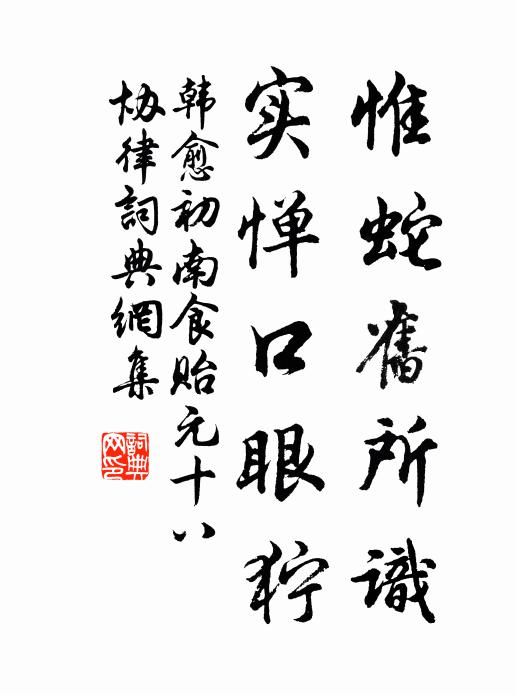 惟蛇舊所識
实惮口眼狞
韩愈初南食贻元十八
协律詞典網集
詞典
网印